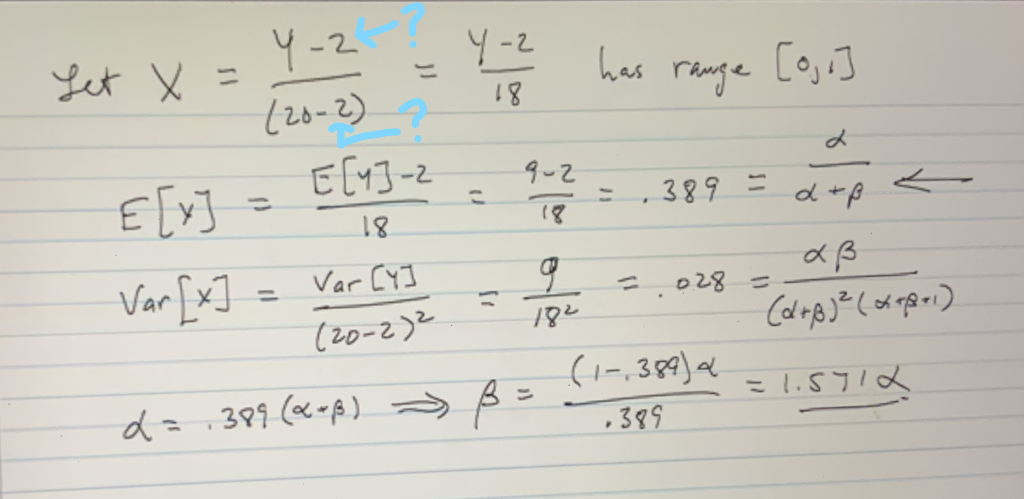 Let X = (Y-2)/(20-2) = (Y-2)/18 has range [0,1]
← ?
← ?
E[X] = (E[Y]-2)/18 = (9-2)/18 = .389 = α/(α+β) ←
Var[X] = Var[Y]/(20-2)² = 9/18² = .028 = αβ/((α+β)²(α+β+1))
α = .389(α+β) ⇒ β = (1-.389)α/.389 = 1.571α